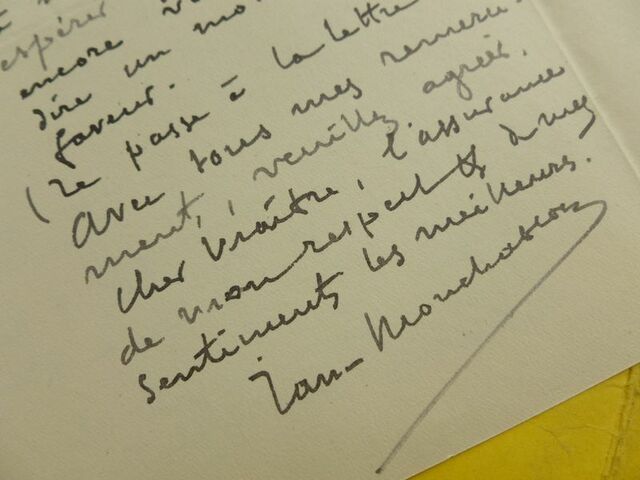 espérer
encore
dire un mot
faveur.
(Je passe à la lettre
Avec tous mes remercie-
ments, veuillez agréer,
cher Maître, l'assurance
de mon respect & de mes
sentiments les meilleurs.
Jean Monchablon